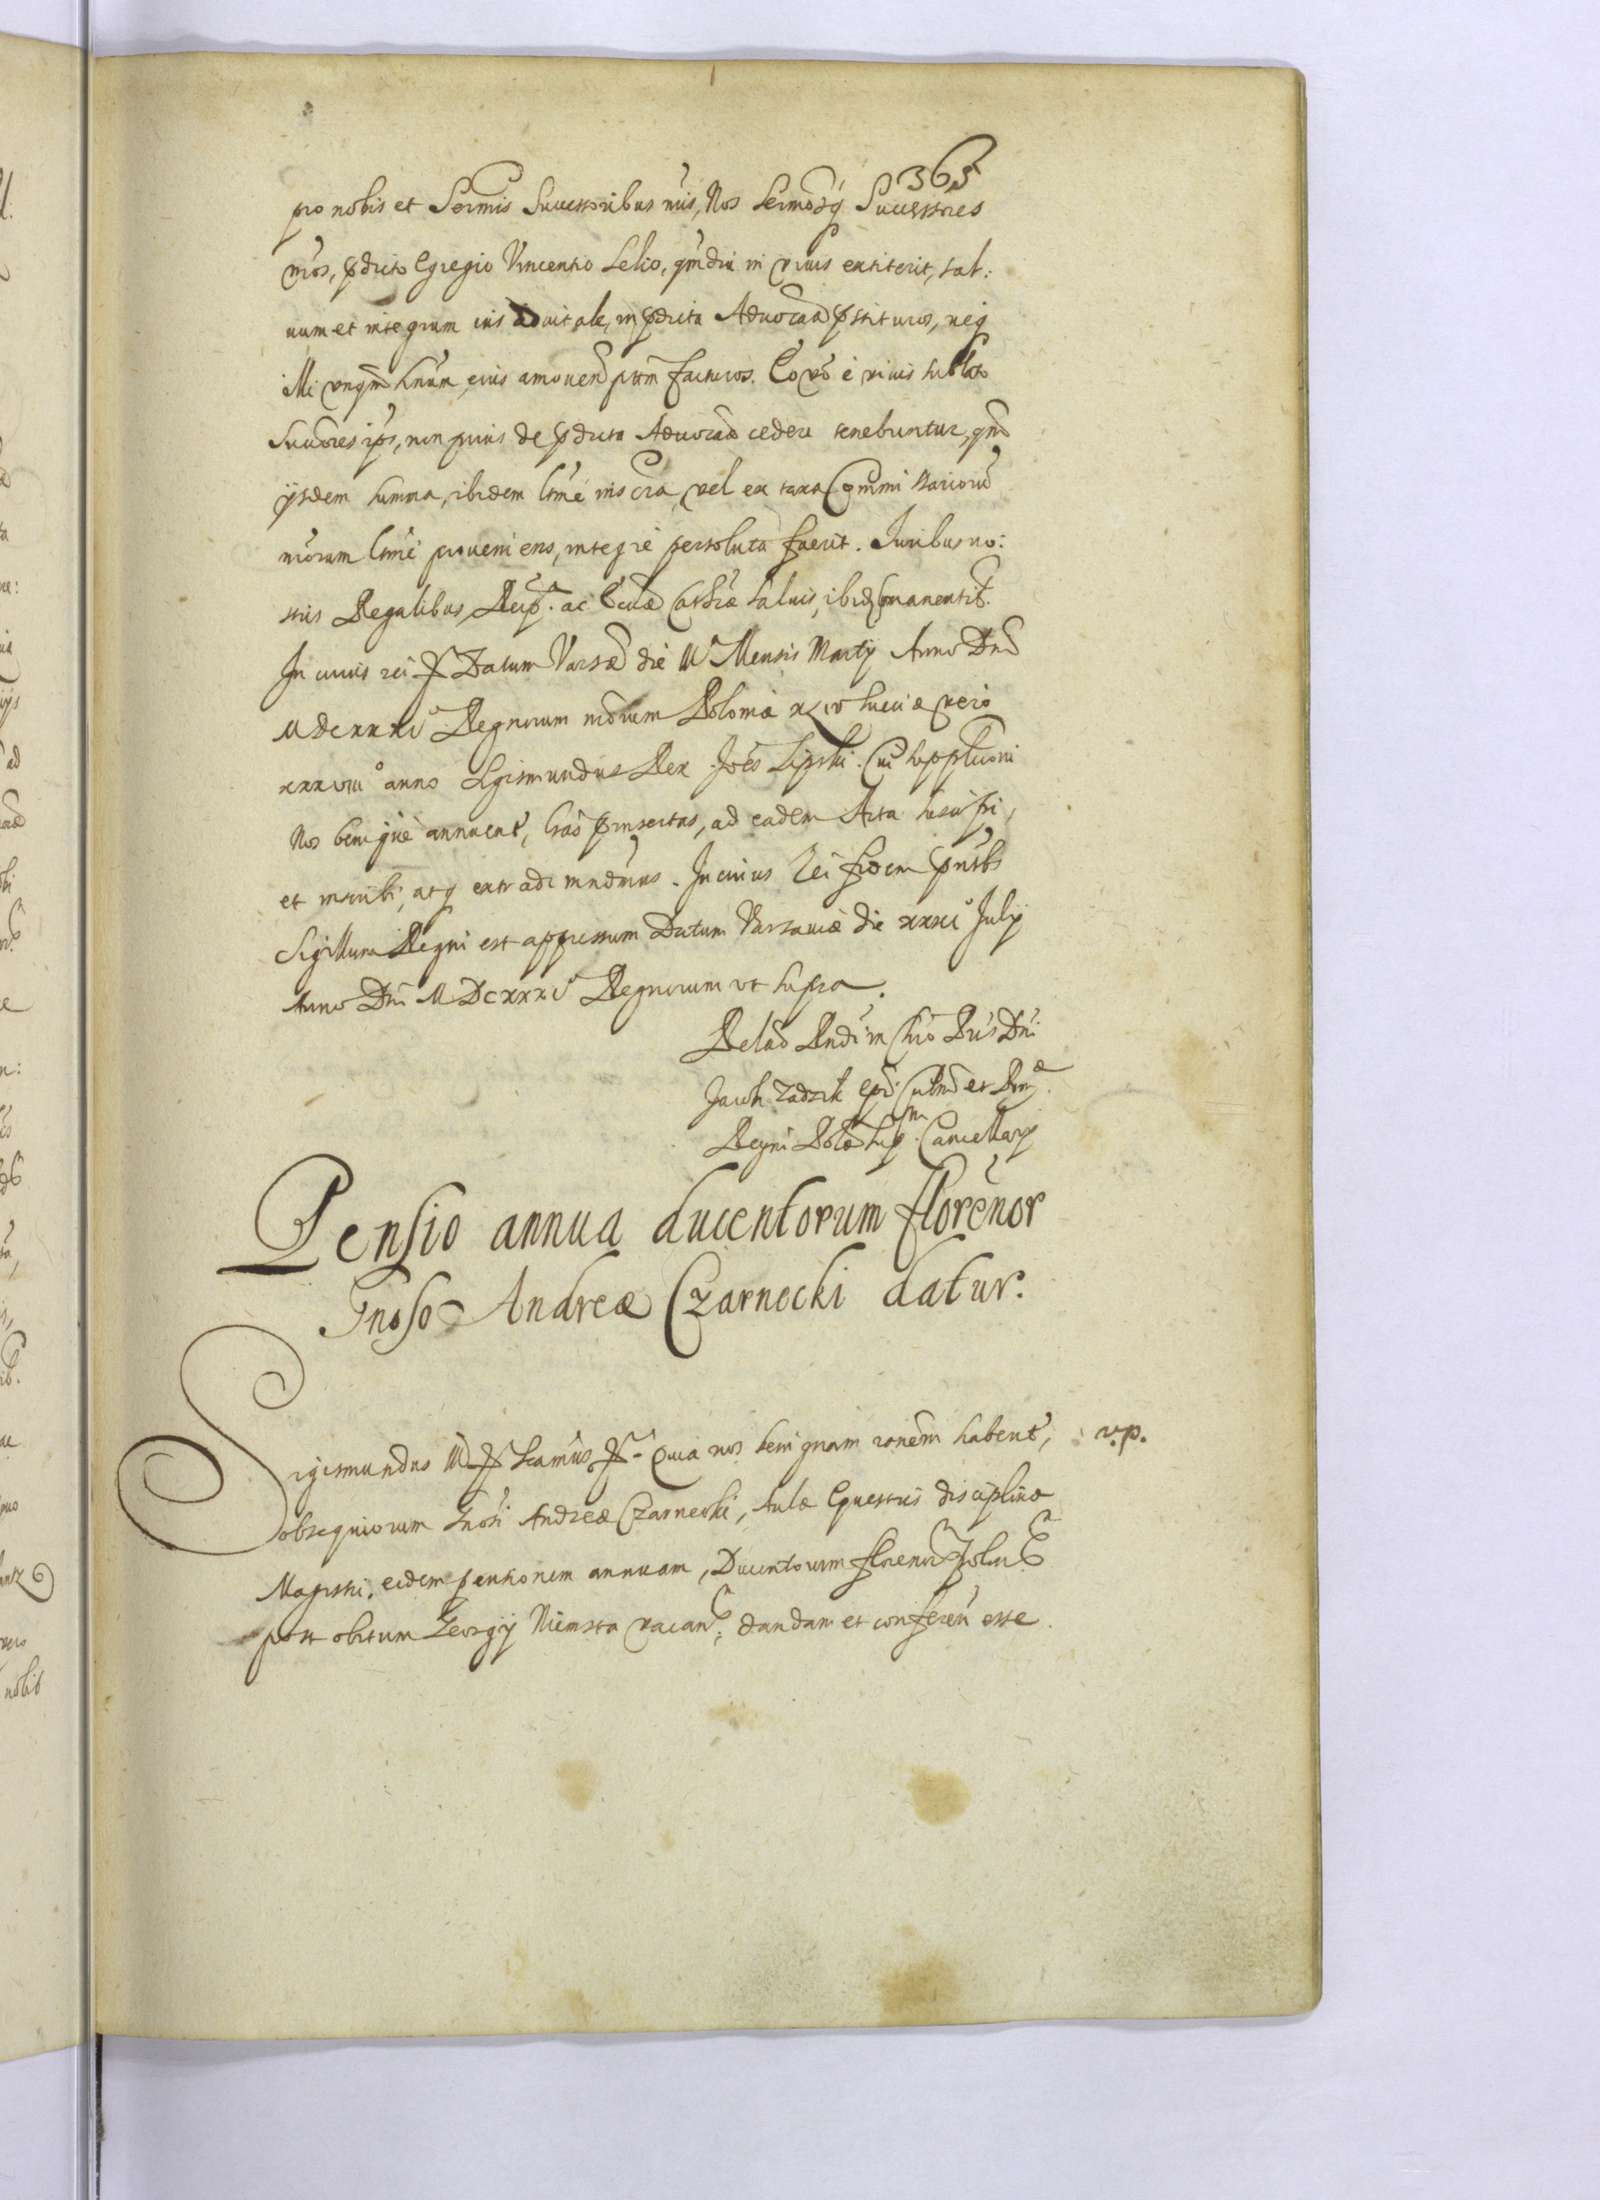 365
pro nobis et Sermis Successoribus nris, Nos Sermosq Successores
nros, pdicto Egregio Vincentio Lelio, qmdiu in vivis extiterit, sal:
vum et integrum ius advitale, in pdicta Advocaa pstituros, neq
illi unqm hnum eius amovend ptem facturos. Eo vo è vivis sublato
Succores ips, non prius de pdicta Advocaa cedere tenebuntur, qm
ijsdem summa, ibidem ltme inscra, vel ex taxa Commissariorum
nrorum ltme proveniens, integrè persoluta fuerit. Iuribus no:
stris Regalibus, Reip. ac Eccliæ Cathcæ salvis, ibidem manentib.
In cuius rei Datum Varsæ die Mensis Martij Anno Dni
MDCXXXI Regnorum nrorum Poloniæ XLIV Sueciæ vero
XXXVIII anno Sigismundus Rex. Joes Lipski. Cui suppliconi
Nos benignè annuent, lras pinsertas, ad eadem Acta suscipi,
et inscribi, atq extradi mndmus. In cuius Rei fidem pntibs
Sigillum Regni est appressum Datum Varsaviæ die XXXI Julij
Anno Dni MDCXXXI Regnorum ut supra.
Relao Rndi in Chro Pris Dni
Jacobi Zadzik Epi Culmen et Pom
Regni Polæ Sup Cancellarij
Pensio annua ducentorum florenor
Gnoso Andreæ Czarnecki datur.
Sigismundus III Scamus Quia nos benignam ronem habent, v.p.
obsequiorum Gnosi Andreæ Czarnecki, Aulæ Equestris disciplinæ
Magistri, eidem pensionem annuam, Ducentorum florenor Polon
post obitum Georgij Niemsta vacan: dandam et conferen esse.